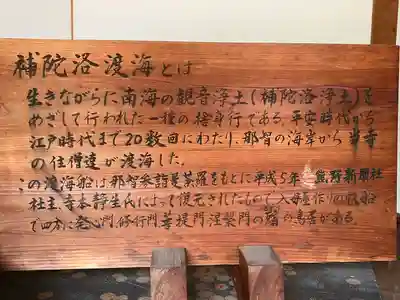 補陀洛渡海とは
生きながらに南海の観音浄土(補陀洛浄土)を
めざして行われた一種の捨身行である。平安時代から
江戸時代まで20数回にわたり、那智の海岸から当寺
の住僧達が渡海した。
この渡海船は那智参詣曼荼羅をもとに平成5年 熊野新聞社
社主、寺本静生氏によって復元されたもので入母屋作りの帆船
で四方に発心門、修行門、菩提門、涅槃門の四つの鳥居がある。